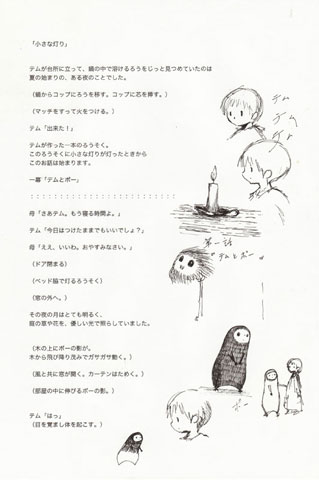 「小さな灯り」
テムが台所に立って、鍋の中で溶けるろうをじっと見つめていたのは
夏の始まりの、ある夜のことでした。
（鍋からコップにろうを移す。コップに芯を挿す。）
（マッチをすって火をつける。）
テム「出来た！」
テムが作った一本のろうそく。
このろうそくに小さな灯りが灯ったときから
このお話は始まります。
一幕「テムとポー」
母「さあテム。もう寝る時間よ。」
テム「今日はつけたままでもいいでしょ？」
母「ええ、いいわ。おやすみなさい。」
（ドア閉まる）
（ベッド脇で灯るろうそく）
（窓の外へ。）
その夜の月はとても明るく、
庭の草や花を、優しい光で照らしていました。
（木の上にポーの影が。
木から飛び降り茂みでガサガサ動く。）
（風と共に窓が開く。カーテンはためく。）
（部屋の中に伸びるポーの影。）
テム「はっ」
（目を覚まし体を起こす。）
テム
テム
第一話
"テムとポー"
ポー